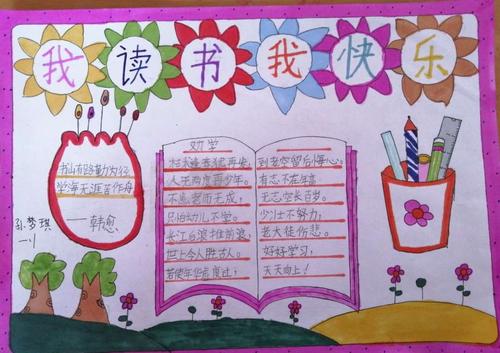 我读书我快乐
书山有路勤为径
学海无涯苦作舟
——韩愈
孙梦琪
一、1
劝学
枯木逢春犹再发，
人无两度再少年。
不患老而无成，
只怕幼儿不学。
长江后浪推前浪，
世上今人胜古人。
若使年华虚度过，
到老空留后悔心。
有志不在年高，
无志空长百岁。
少壮不努力，
老大徒伤悲。
好好学习，
天天向上！